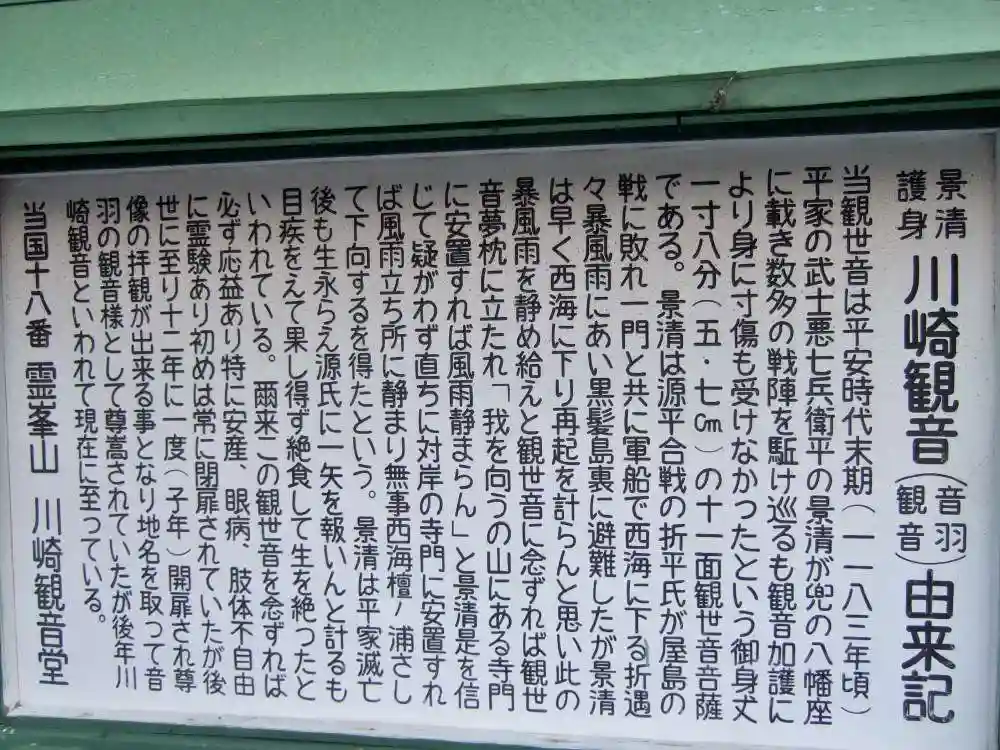 景清
護身
川崎観音(音羽観音)由来記
当観世音は平安時代末期(一一八三年頃)
平家の武士悪七兵衛平の景清が兜の八幡座
に載き数多の戦陣を駈け巡るも観音加護に
より身に寸傷も受けなかったという御身丈
一寸八分(五・七㎝)の十一面観世音音菩薩
である。景清は源平合戦の折平氏が屋島の
戦に敗れ一門と共に軍船で西海に下る折遇
々暴風雨にあい黒髪島裏に避難したが景清
は早く西海に下り再起を計らんと思い此の
暴風雨を静め給えと観世音に念ずれば観世
音夢枕に立たれ「我を向うの山にある寺門
に安置すれば風雨静まらん」と景清是を信
じて疑がわず直ちに対岸の寺門に安置すれ
ば風雨立ち所に静まり無事西海檀ノ浦さし
て下向するを得たという。景清は平家滅亡
後も生永らえ源氏に一矢を報いんと計るも
目疾をえて果し得ず絶食して生を絶ったと
いわれている。爾来この観世音を念ずれば
必ず応益あり特に安産、眼病、肢体不自由
に霊験あり初めは常に閉扉されていたが後
世に至り十二年に一度(子年)開扉され尊
像の拝観が出来る事となり地名を取って音
羽の観音様として尊嵩されていたが後年川
崎観音といわれて現在に至っている。
当国十八番 霊峯山 川崎観音堂